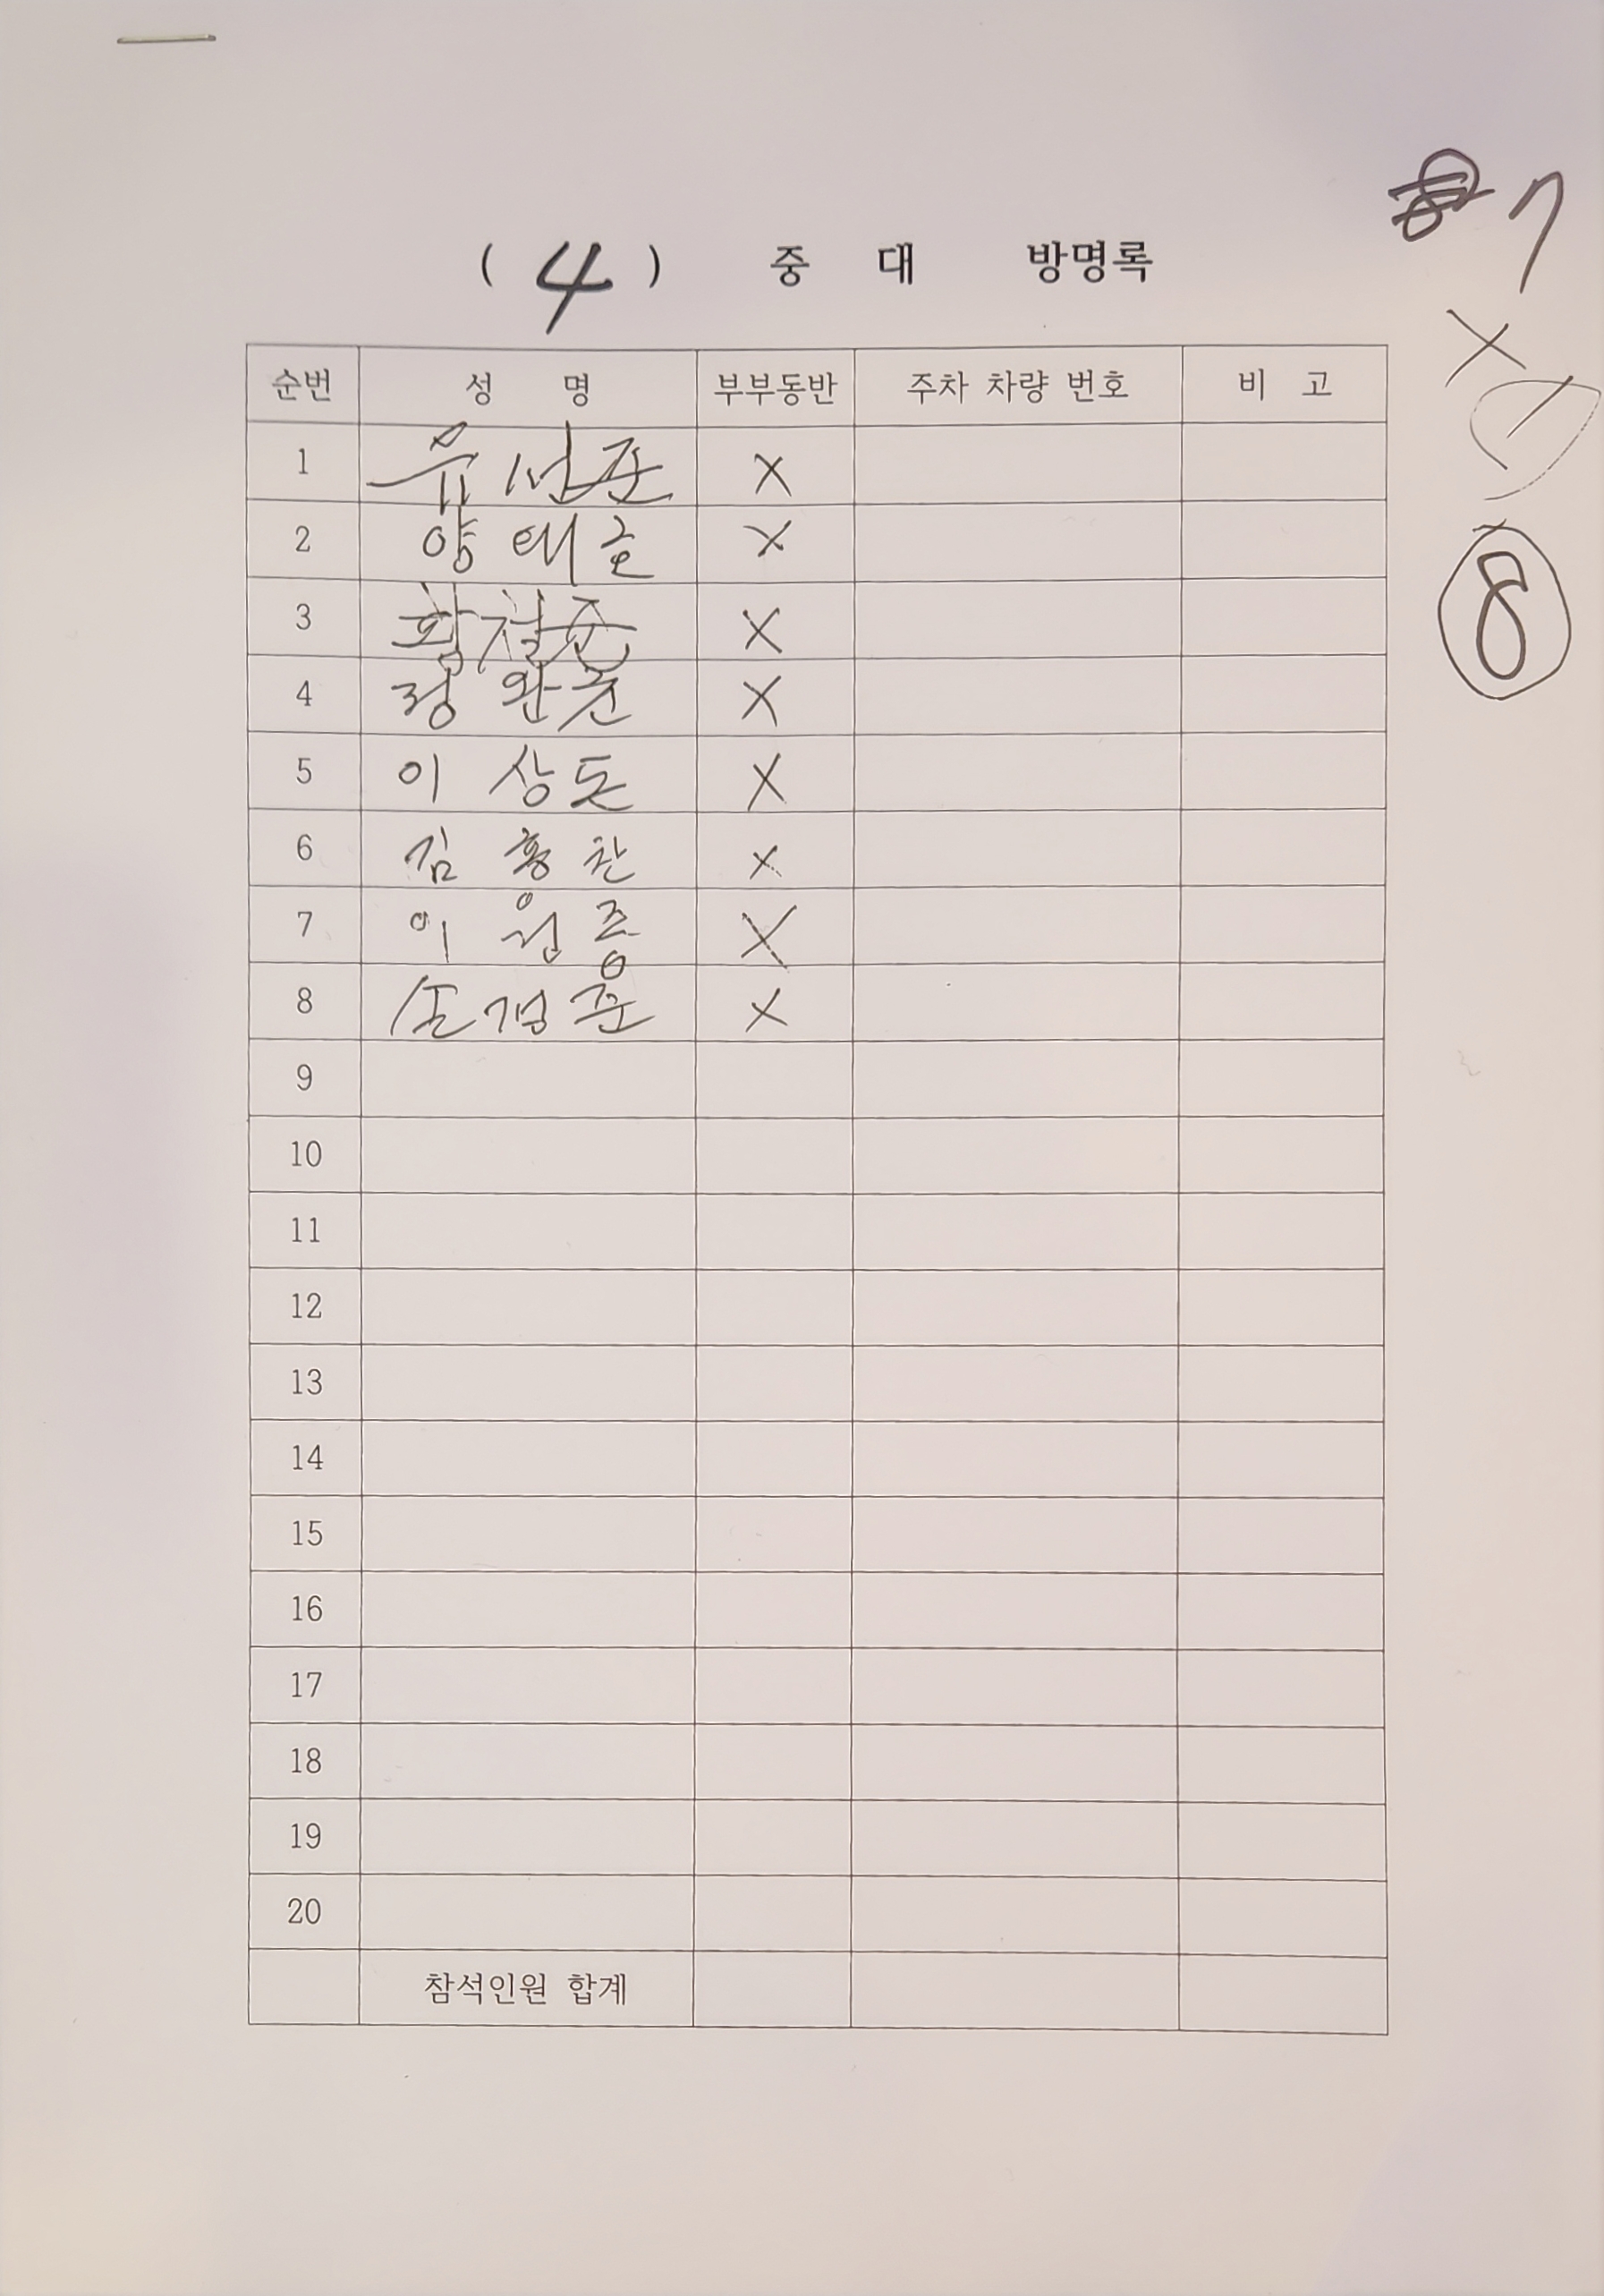 7
( 4 ) 중 대 방명록
X
순번 성 명 부부동반 주차 차량 번호 비 고
1 유선준 X
2 양태호 X
8
3 X
4 정완준 X
5 이상돈 X
6 김홍찬 X
7 이원종 X
8 손경준 X
9
10
11
12
13
14
15
16
17
18
19
20
참석인원 합계